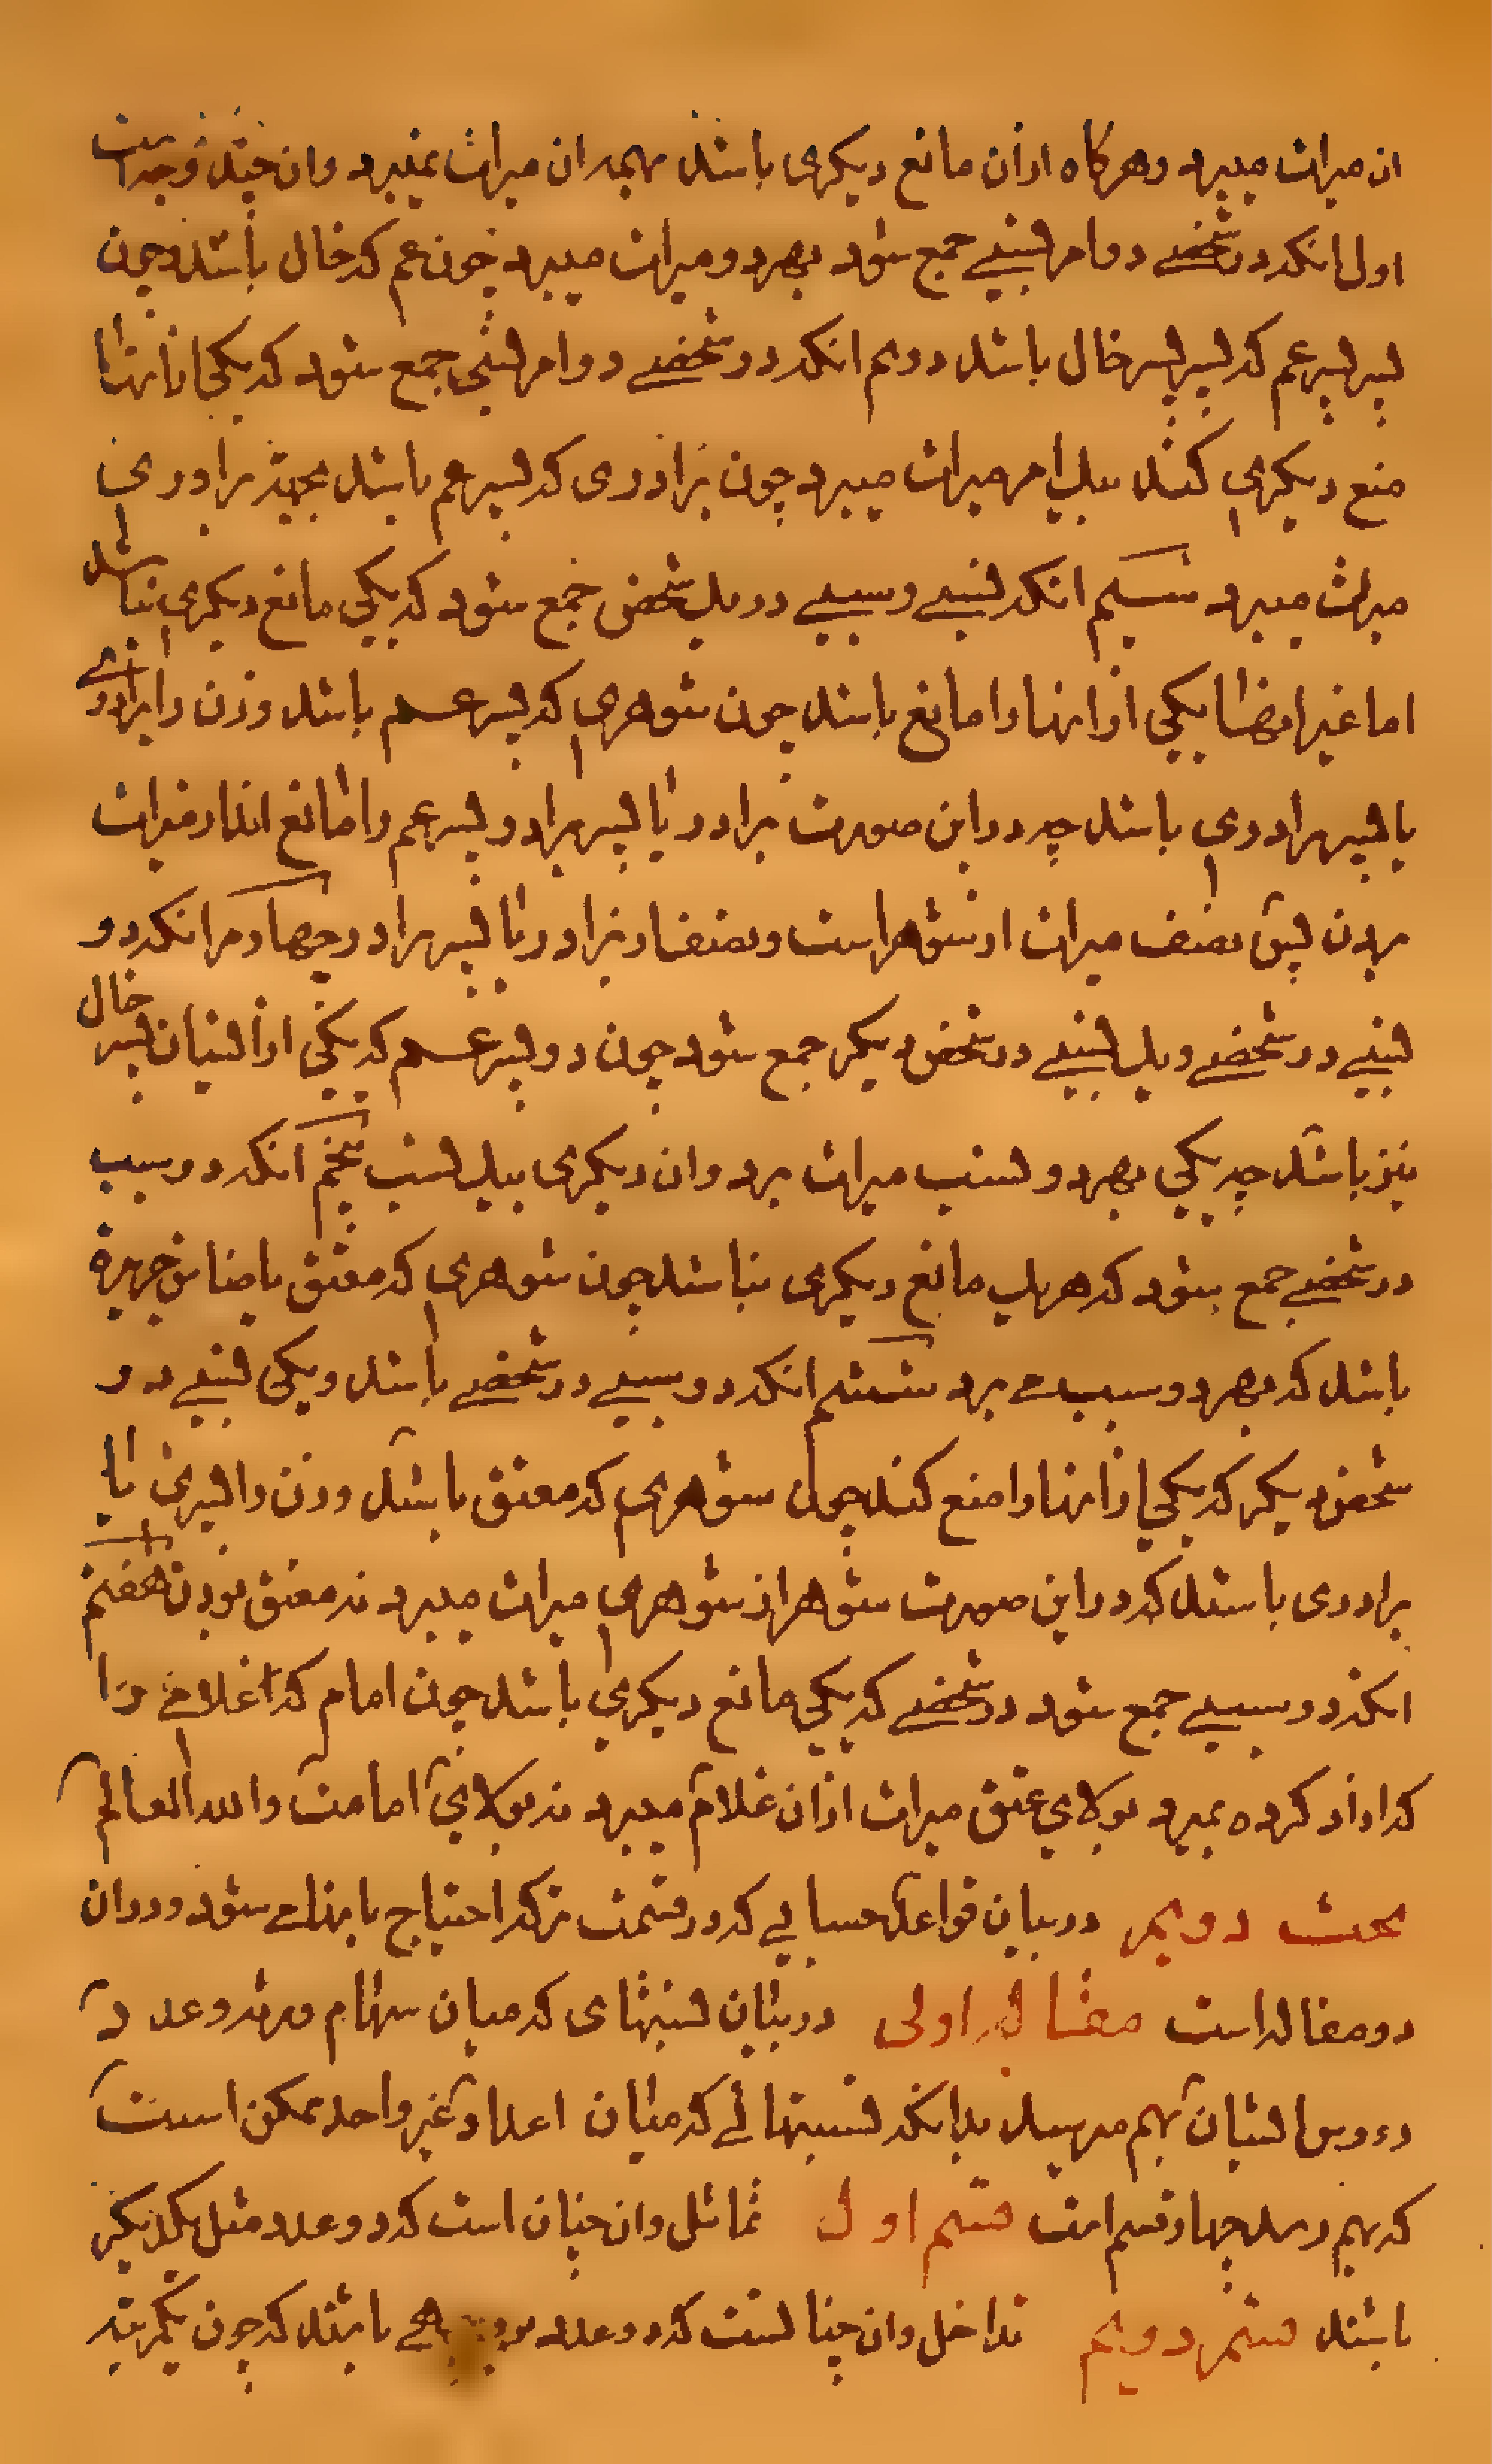 ان میراث میبرد و هرگاه از آن مانع دیگری باشد بهمه ان میراث نمیبرد و ان چند وجه است
اول انکه در شخصے دو امر نسبیے جمع شود بهر دو میراث میبرد چون عم که خال باشد و چون
پسر پسر عم که پسر پسر خال باشد دویم انکه در شخصے دو امر نسبی جمع شود که یکی از انها
منع دیگری کند بیك امر میراث میبرد چون برادری که پسر عم باشد بجهة برادری
میراث میبرد سیم انکه نسبیے و سببیے در یك شخص جمع شود که یکی مانع دیگری نباشد
اما غیر انها یکی از انها را مانع باشد چون شوهری که پسر عم باشد و زن را برادرے
یا پسر برادری باشد چه در این صورت برادر یا پسر برادر پسر عم را مانع اند از میراث
بردن پس نصف میراث از شوهر است و نصف از برادر یا پسر برادر چهارم انکه دو
نسبیے در شخصے و یك نسبیے در شخص دیگر جمع شود چون دو پسر عم که یکی از ایشان پسر خال
نیز باشد چه یکی بهر دو نسب میراث برد و ان دیگری بیك نسب پنجم انکه دو سبب
در شخصے جمع شود که هر یك مانع دیگری نباشد چون شوهری که معتق یا ضامن جریره
باشد که بهر دو سبب مے برد ششم انکه دو سببے در شخصے باشد و یکی نسبیے در
شخص دیگر که یکی از انها را منع کند چون شوهری که معتق باشد و زن را پسری یا
برادری باشد که در این صورت شوهر از شوهری میراث میبرد نه معتق بودن هفتم
انکه دو سببیے جمع شود در شخصے که یکی مانع دیگری باشد چون امام که غلامے را
که ازاد کرده بمیرد بولای عتق میراث از ان غلام میبرد نه بولای امامت والله العالم
بحث دویم در بیان قواعد حسابی که در قسمت ترکه احتیاج بانها مے شود و در ان
دو مقاله است مقاله اولی در بیان نسبتهای که میان سهام ورثه و عدد
رءوس ایشان بهم میرسد بدانکه نسبتهائے که میان اعداد غیر واحد ممکن است
که بهم رسد چهار قسم است قسم اول تماثل و ان چنان است که دو عدد مثل یکدیگر
باشند قسم دویم تداخل و ان چنانست که دو عدد باشد که چون